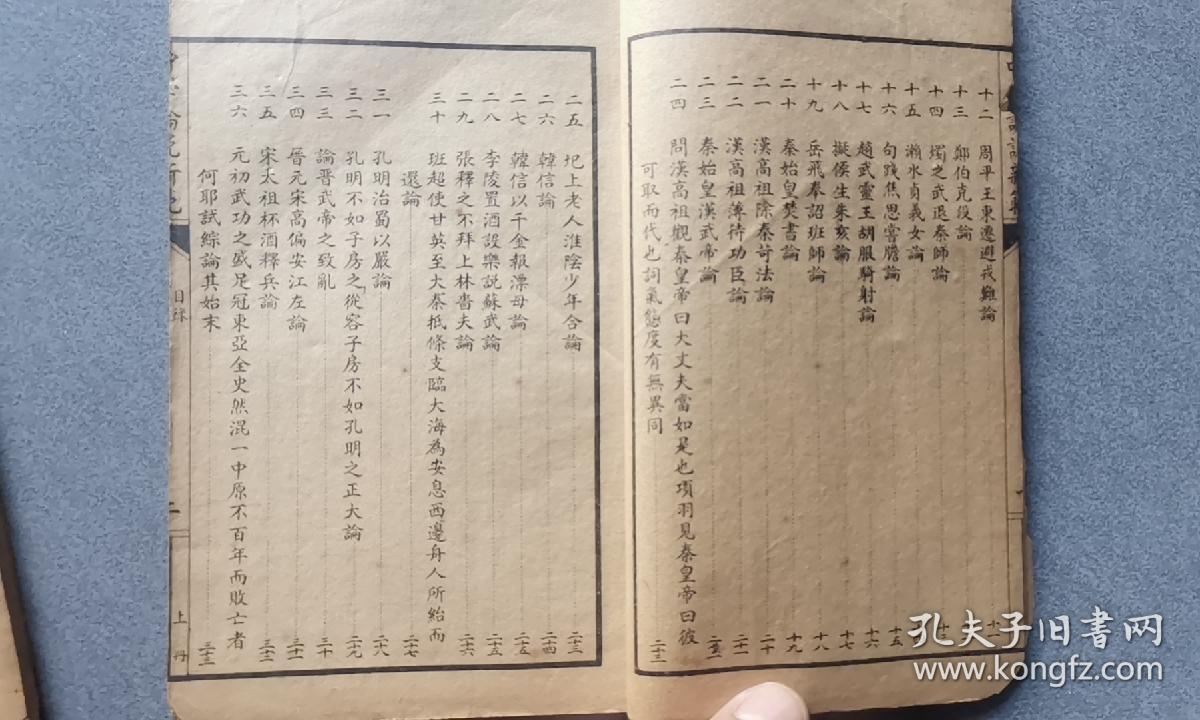 十二 周平王東遷避戎難論
十三 鄭伯克段論
十四 燭之武退秦師論
十五 瀨水貞義女論
十六 句踐焦思嘗膽論 十五
十七 趙武靈王胡服騎射論 十六
十八 擬侯生朱亥論 十七
十九 岳飛奉詔班師論 十八
二十 秦始皇焚書論 十九
二一 漢高祖除秦苛法論 二十
二二 漢高祖薄待功臣論 二十一
二三 秦始皇漢武帝論
二四 問漢高祖觀秦皇帝曰大丈夫當如是也項羽見秦皇帝曰彼
可取而代也詞氣態度有無異同 二十三
二五 圯上老人淮陰少年合論 二十三
二六 韓信論 二十四
二七 韓信以千金報漂母論 二十五
二八 李陵置酒設樂説蘇武論 二十五
二九 張釋之不拜上林嗇夫論 二十六
三十 班超使甘英至大秦抵條支臨大海為安息西邊舟人所紿而
還論 二十七
三一 孔明治蜀以嚴論 二十八
三二 孔明不如子房之從容子房不如孔明之正大論 二十九
三三 論晋武帝之致亂 三十
三四 晉元宋高偏安江左論 三十一
三五 宋太祖杯酒釋兵論 三十二
三六 元初武功之盛足冠東亞全史然混一中原不百年而敗亡者
何耶試綜論其始末 三十三
目錄
二
上冊
孔夫子旧书网
www.kongfz.com